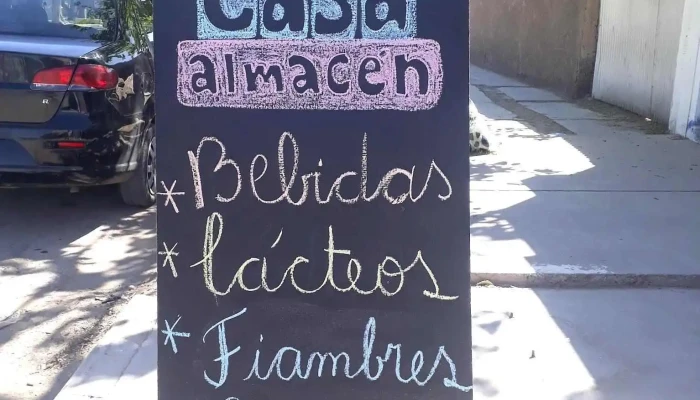 Casa
almacén
* Bebidas
* Lácteos
* Fiambres